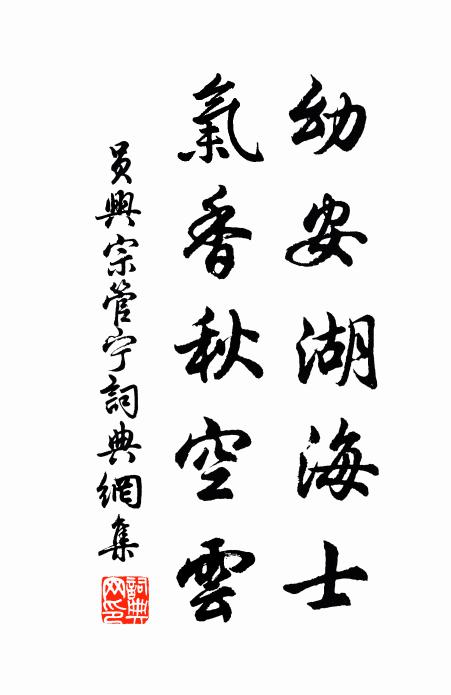 幼安湖海士
氣香秋空雲
員興宗管宁詞典網集
詞典網印